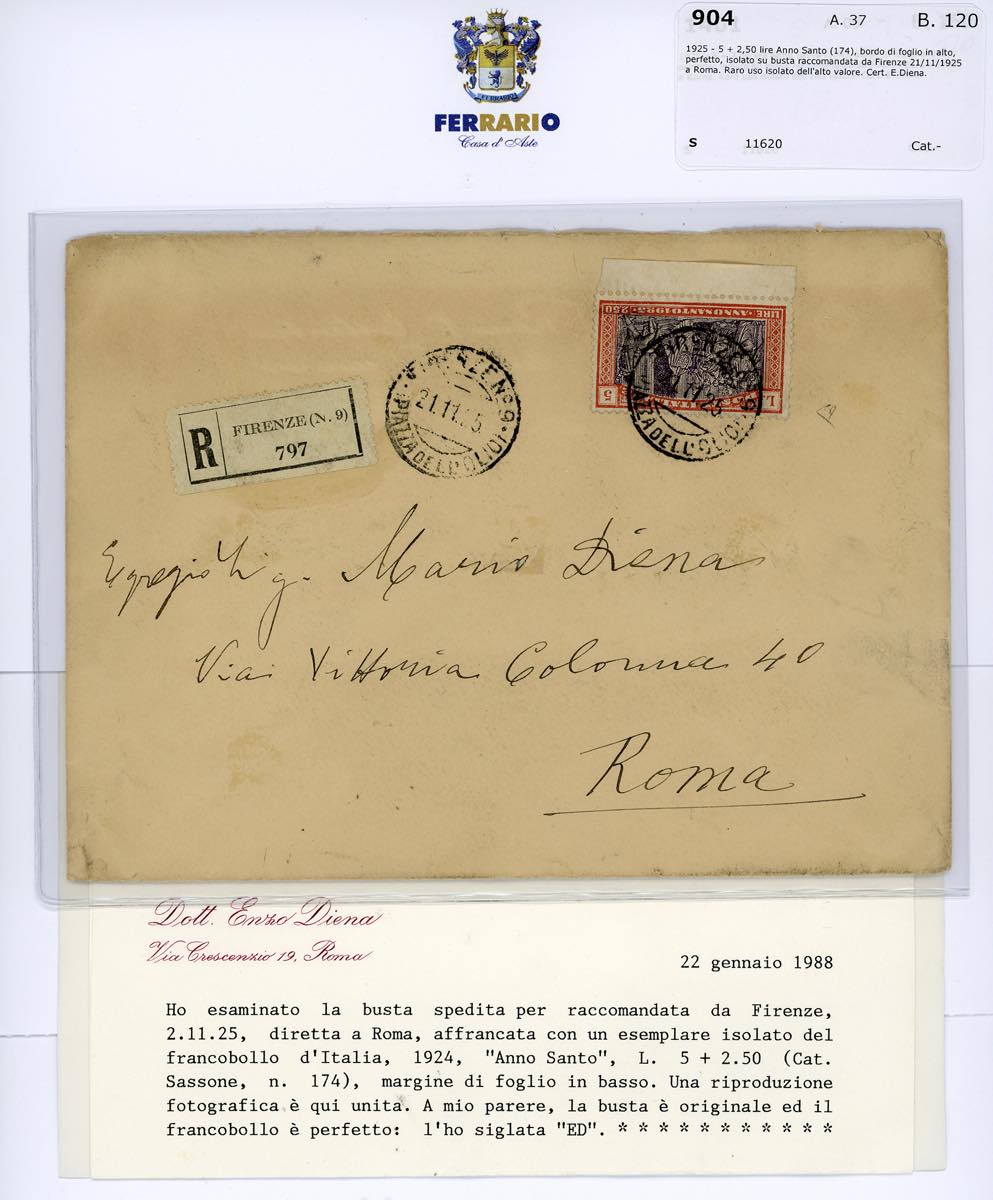 904 A. 37 B. 120
1925 - 5 + 2,50 lire Anno Santo (174), bordo di foglio in alto,
perfetto, isolato su busta raccomandata da Firenze 21/11/1925
a Roma. Raro uso isolato dell'alto valore. Cert. E.Diena.
S 11620 Cat.-
FERRARIO
FERRARIO
Casa d'Aste
LIRE · ANNO SANTO 1925 · 2.50
5
FIRENZE N° 9
11.25
PIAZZA DELL'OLIO
FIRENZE N° 9
21.11.25
PIAZZA DELL'OLIO
R FIRENZE (N. 9)
797
Egregio Sig. Mario Diena
Via Vittoria Colonna 40
Roma
Dott. Enzo Diena
Via Crescenzio 19, Roma
22 gennaio 1988
Ho esaminato la busta spedita per raccomandata da Firenze,
2.11.25, diretta a Roma, affrancata con un esemplare isolato del
francobollo d'Italia, 1924, "Anno Santo", L. 5 + 2.50 (Cat.
Sassone, n. 174), margine di foglio in basso. Una riproduzione
fotografica è qui unita. A mio parere, la busta è originale ed il
francobollo è perfetto: l'ho siglata "ED". * * * * * * * * * * *